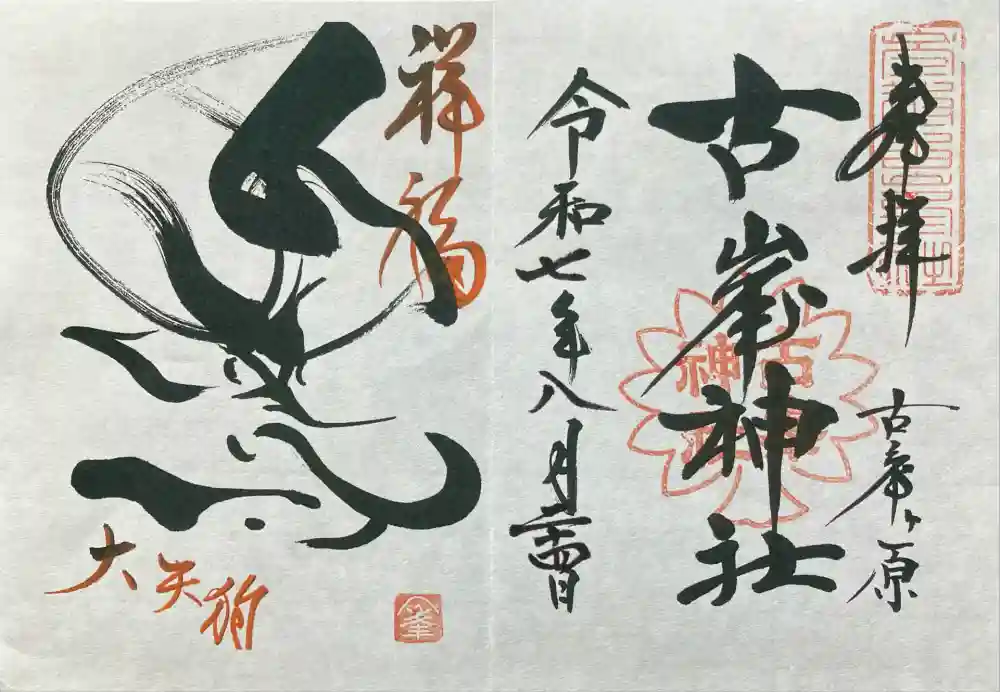 奉拝
古峯ヶ原
古峯神社
令和七年八月二十四日
祥福
大天狗
古峯神社
峯